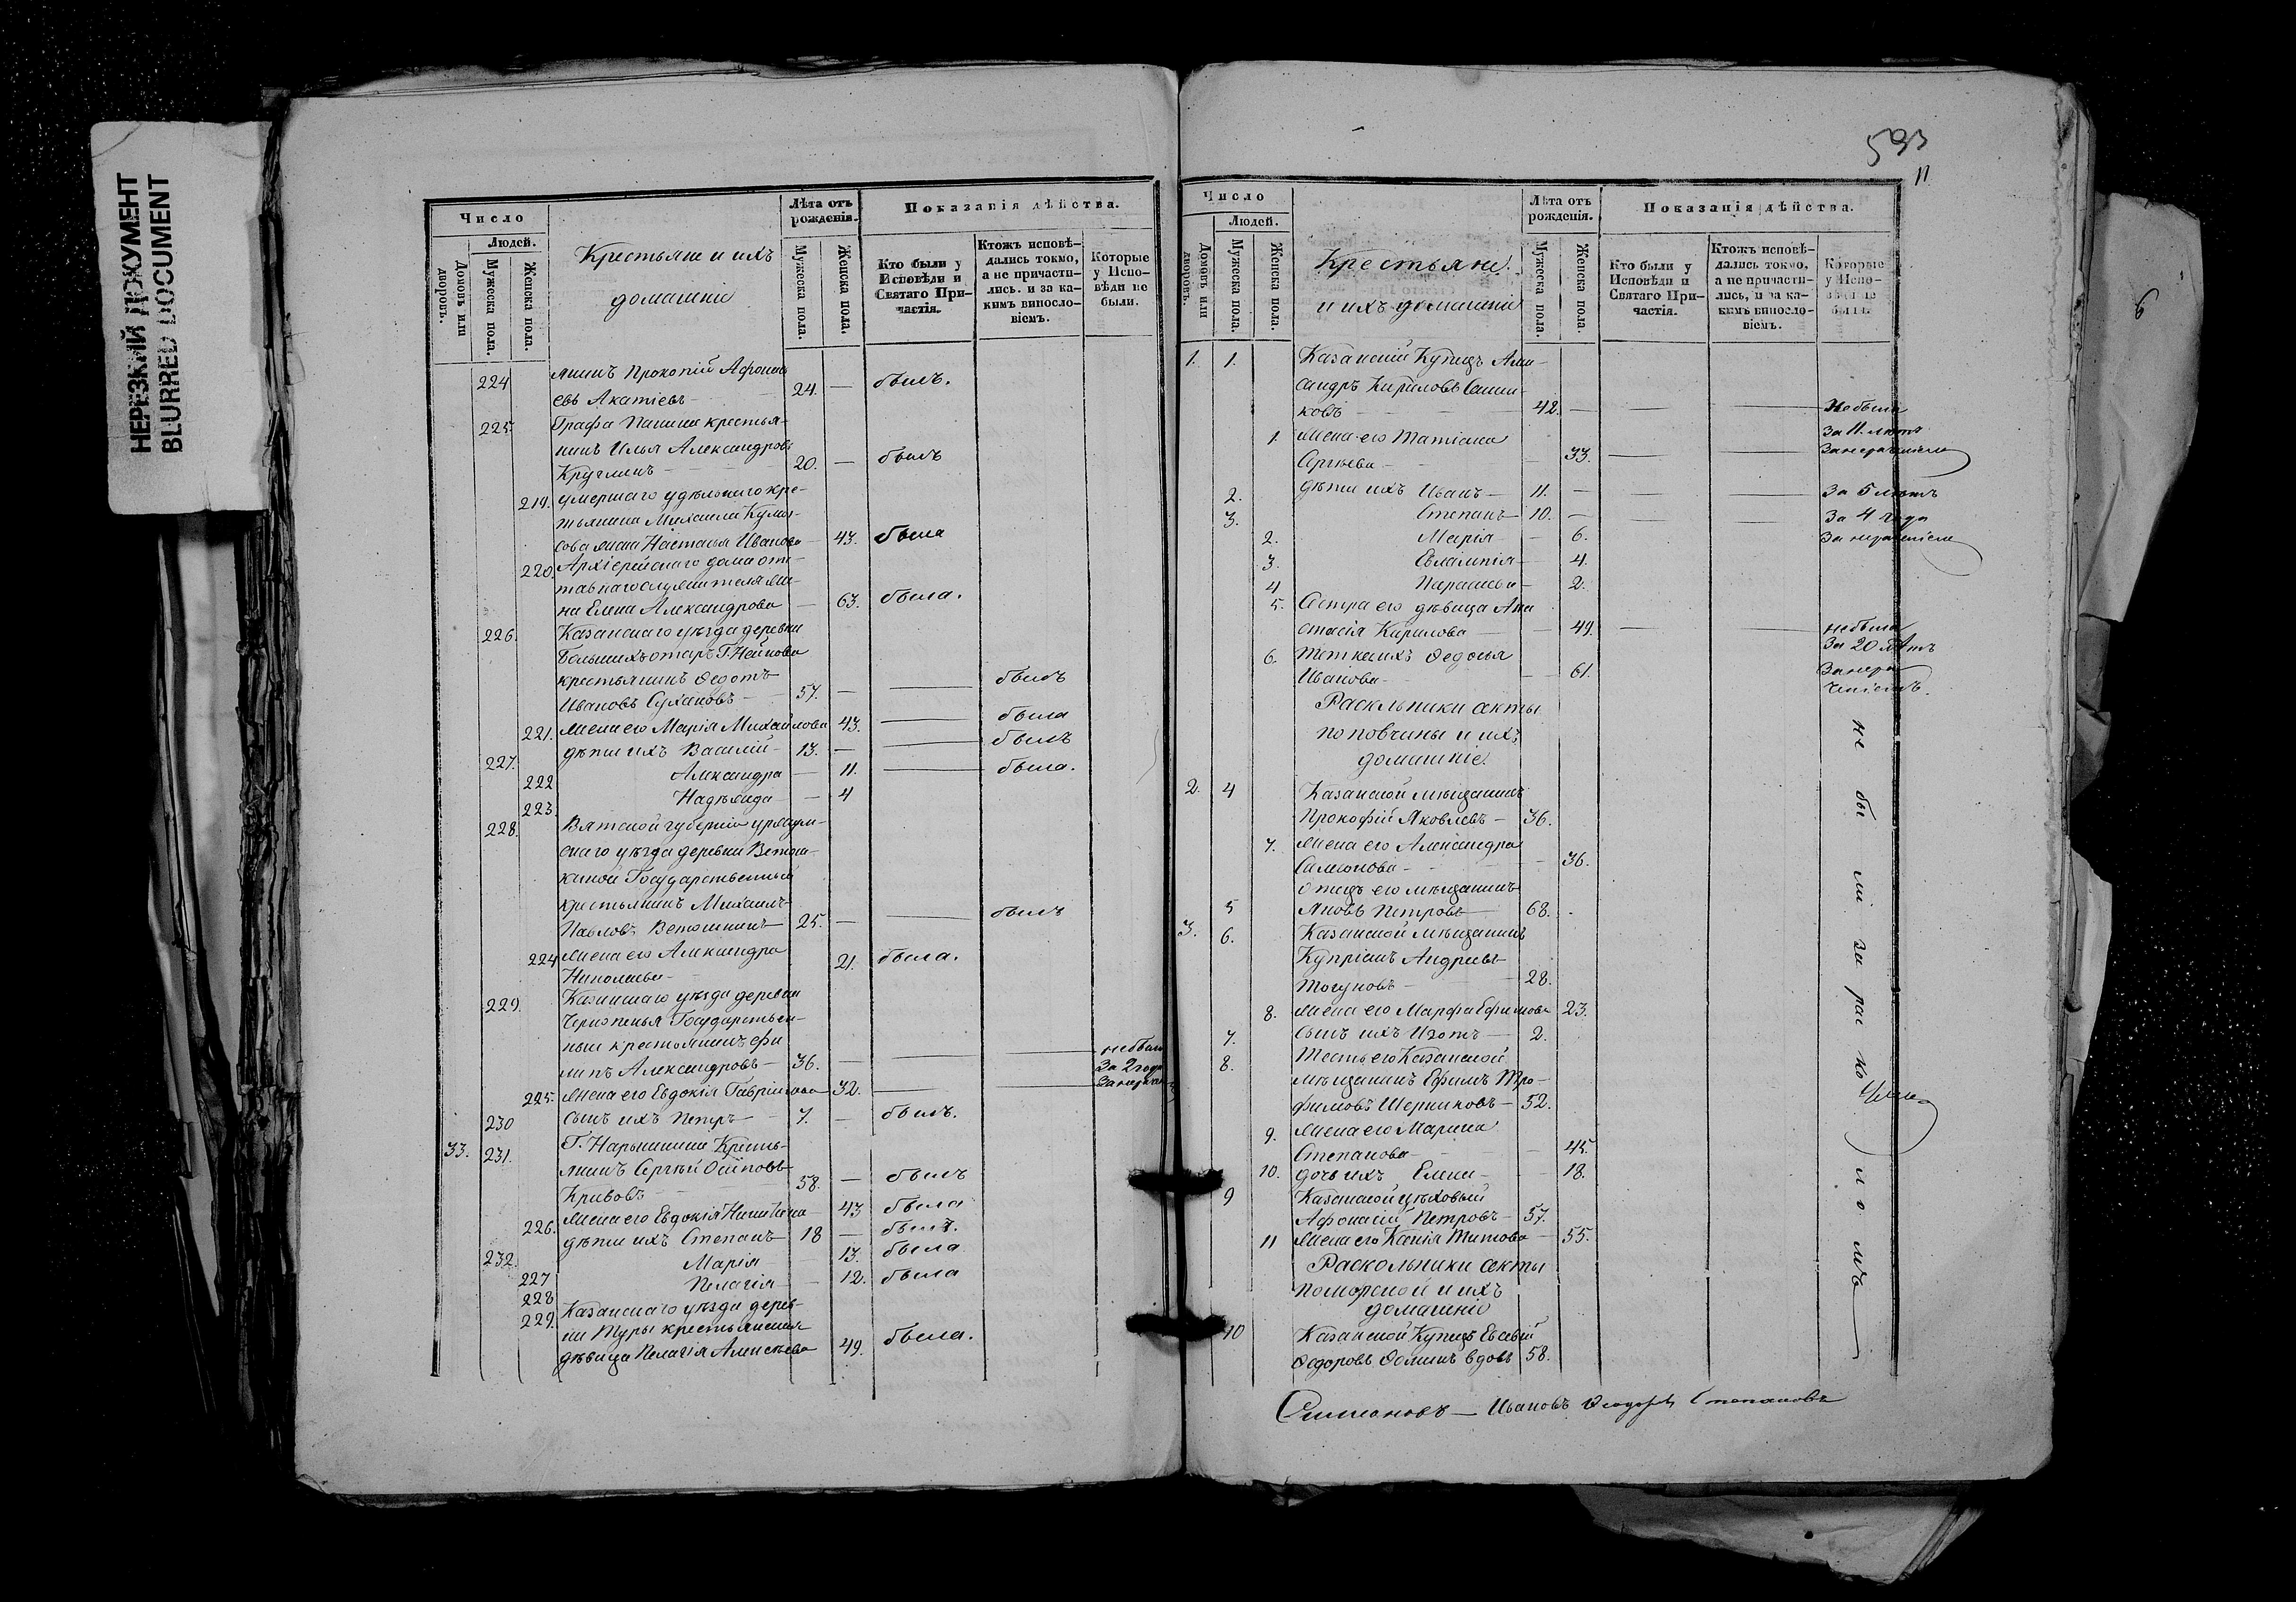 НЕРЕЗКИЙ ДОКУМЕНТ
BLURRED DOCUMENT
Число
Людей.
Домовъ или дворовъ.
Мужеска пола.
Женска пола.
Крестьяне и ихъ
домашніе
Лѣта отъ рожденія.
Мужеска пола.
Женска пола.
Показанія дѣйства.
Кто были у Исповѣди и Святаго Причастія.
Ктожъ исповѣ-
дались токмо,
а не причасти-
лись. и за ка-
кимъ винословіемъ.
Которые
у Испо-
вѣди не
были.
224 янинъ Прокопій Афонась
евъ Акатіевъ 24. — былъ.
225. Графа Панина крестья-
нинъ Илья Александровъ
Кругминъ 20. — былъ
219. умершаго удѣльнаго кре-
тьянина Михаила
жена Настасья Иванова — 43. была
220. Архіерейскаго дома отс-
тавнаго служителя же-
на Елена Александрова — 63. была.
226. Казанскаго уѣзда деревни
Большихъ отаръ Г. Нейкова
крестьянинъ Федотъ
Ивановъ Сухановъ 57. — — былъ
221. жена его Марія Михайлова 43. — была
227. дѣти ихъ Василій 13. — — былъ
222 Александра — 11. — была.
223 Надежда — 4
228. Вятской губерніи уржум-
скаго уѣзда деревни Ветош-
киной Государственный
крестьянинъ Михаилъ
Павловъ Ветошкинъ 25. — — былъ
224 жена его Александра
Николаева 21. была.
229. Казанскаго уѣзда деревни
Чернопенья Государствен-
ный крестьянинъ Фи
липъ Александровъ 36. — — не былъ
за 2 года
225. жена его Евдокія Гаврилова 32. — —
230 сынъ ихъ Петръ 7. — былъ.
33. 231. Г. Нарышкина Кресть-
янинъ Сергѣй Осиповъ
Кривовъ 58. — былъ
226. жена его Евдокія Никитина 43 была
232. дѣти ихъ Степанъ 18 — былъ.
227 Марія 13. была
228 Пелагія — 12. была
229. Казанскаго уѣзда дерев-
ни Туры крестьянская
дѣвица Пелагія Алексѣева 49. была.
593
11
Число
Людей.
Домовъ или дворовъ.
Мужеска пола.
Женска пола.
Крестьяне
и ихъ домашніе
Лѣта отъ рожденія.
Мужеска пола.
Женска пола.
Показанія дѣйства.
Кто были у Исповѣди и Святаго Причастія.
Ктожъ исповѣ-
дались токмо,
а не причасти-
лись, и за ка-
кимъ винословіемъ.
Которые
у Испо-
вѣди не
были.
1. 1. Казанскій Купецъ Алек-
сандръ Кириловъ
ковъ 42. — — — Не былъ
за 11. лѣтъ
1. жена его Татіана
Сергѣева 33. — — за нерачѣніемъ
2. дѣти ихъ Иванъ 11. — — за 5 лѣтъ
3. Степанъ 10. — — — за 4 года
2. Марія — 6. за нерачѣніемъ
3. Евлампія 4.
4 Параскева 2.
5. Сестра его дѣвица Ана
стасія Кирилова — 49. — — не была
за 20 лѣтъ
6. Тетка ихъ Федосья
Иванова — 61. за нера
чѣніемъ.
Раскльники секты
поповчины и ихъ
домашніе.
2. 4 Казанской мѣщанинъ
Прокофій Яковлевъ 36.
7. жена его Александра
Самсонова 36.
отецъ его мѣщанинъ
5 Яковъ Петровъ 68.
3. 6. Казанской мѣщанинъ
Купріанъ Андреевъ
Тогуновъ 28.
8. жена его Марфа Ефимова 23.
7. сынъ ихъ Изотъ 2.
8. Тесть его Казанской
мѣщанинъ Ефимъ Тро-
фимовъ Шерниковъ 52.
9. жена его Марина
Степанова 45.
10. дочь ихъ Елена — 18.
9 Казанской цѣховый
Афонасій Петровъ 57.
11 жена его Ксенія Титова 55.
Раскольники секты
поморской и ихъ
домашніе
10 Казанской Купецъ Евсевій
Федоровъ Фоминъ вдовъ 58.
не бы ли за рас ко
ломъ
Симеоновъ — Ивановъ Феодоръ Степановъ
6